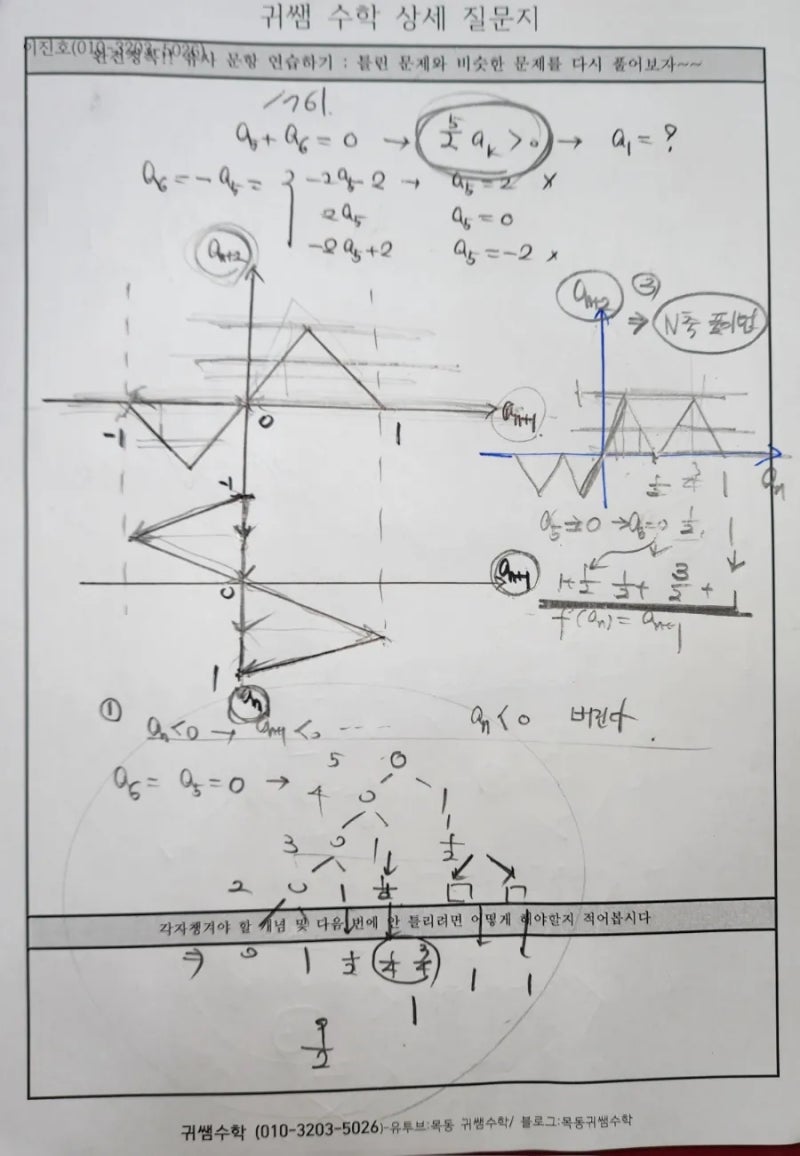 귀쌤 수학 상세 질문지
이진호(010-3203-5026)
완전정복!! 유사 문항 연습하기 : 틀린 문제와 비슷한 문제를 다시 풀어보자~~
1761.
a₅ + a₆ = 0 → 5/2 aₖ > 0 → a₁ = ?
a₆ = -a₅ = { -2a₅-2 → a₅ = 2 ×
2a₅ a₅ = 0
-2a₅+2 a₅ = -2 ×
aₙ₊₂
aₙ₊₂ ③
⇒ N축
-1 0 1 aₙ₊₁
1
1/2 3/4 1 aₙ
-1
0 aₙ₊₁
1+1/2 1/2+ 3/2 + 1
f(aₙ) = aₙ₊₁
1
aₙ
①
aₙ<0 → aₙ₊₁<0 ---- aₙ<0 버린다.
a₆ = a₅ = 0 → 5 0
4 0 1
3 0 1 1/2
2 0 1 1/2 □ □
각자챙겨야 할 개념 및 다음 번에 안 틀리려면 어떻게 해야할지 적어봅시다
⇒ 0 1 1/2 1/4 3/4 1 1
1
9/2
귀쌤수학 (010-3203-5026)-유투브:목동 귀쌤수학/ 블로그:목동귀쌤수학